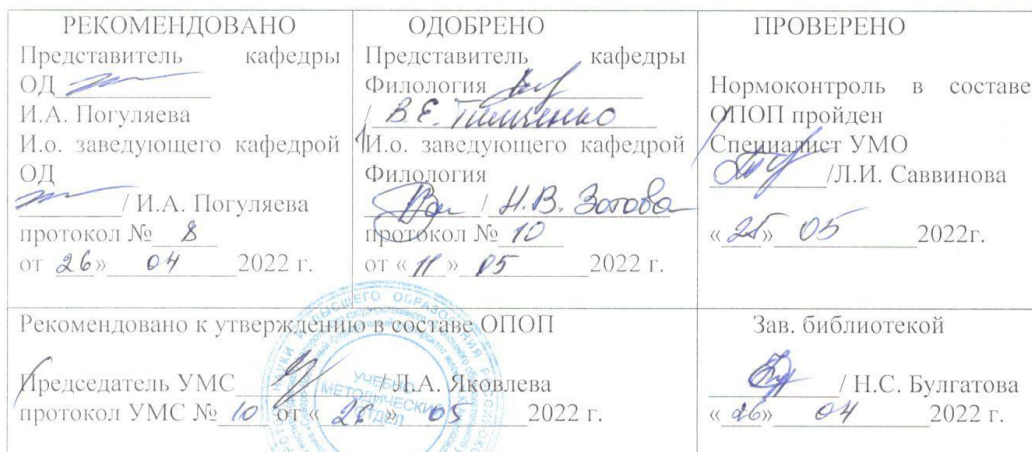 РЕКОМЕНДОВАНО
Представитель кафедры
ОД
И.А. Погуляева
И.о. заведующего кафедрой
ОД
/ И.А. Погуляева
протокол № 8
от 26» 04 2022 г.
ОДОБРЕНО
Представитель кафедры
Филология
/ В.Е. Тимченко
И.о. заведующего кафедрой
Филология
/ Н.В. Зотова
протокол № 10
от « 11 » 05 2022 г.
ПРОВЕРЕНО
Нормоконтроль в составе
ОПОП пройден
Специалист УМО
/Л.И. Саввинова
«25» 05 2022г.
Рекомендовано к утверждению в составе ОПОП
Председатель УМС / Л.А. Яковлева
протокол УМС № 10 от « 26 » 05 2022 г.
УЧЕБНО-
МЕТОДИЧЕСКИЙ
ОТДЕЛ
Зав. библиотекой
/ Н.С. Булгатова
«26» 04 2022 г.